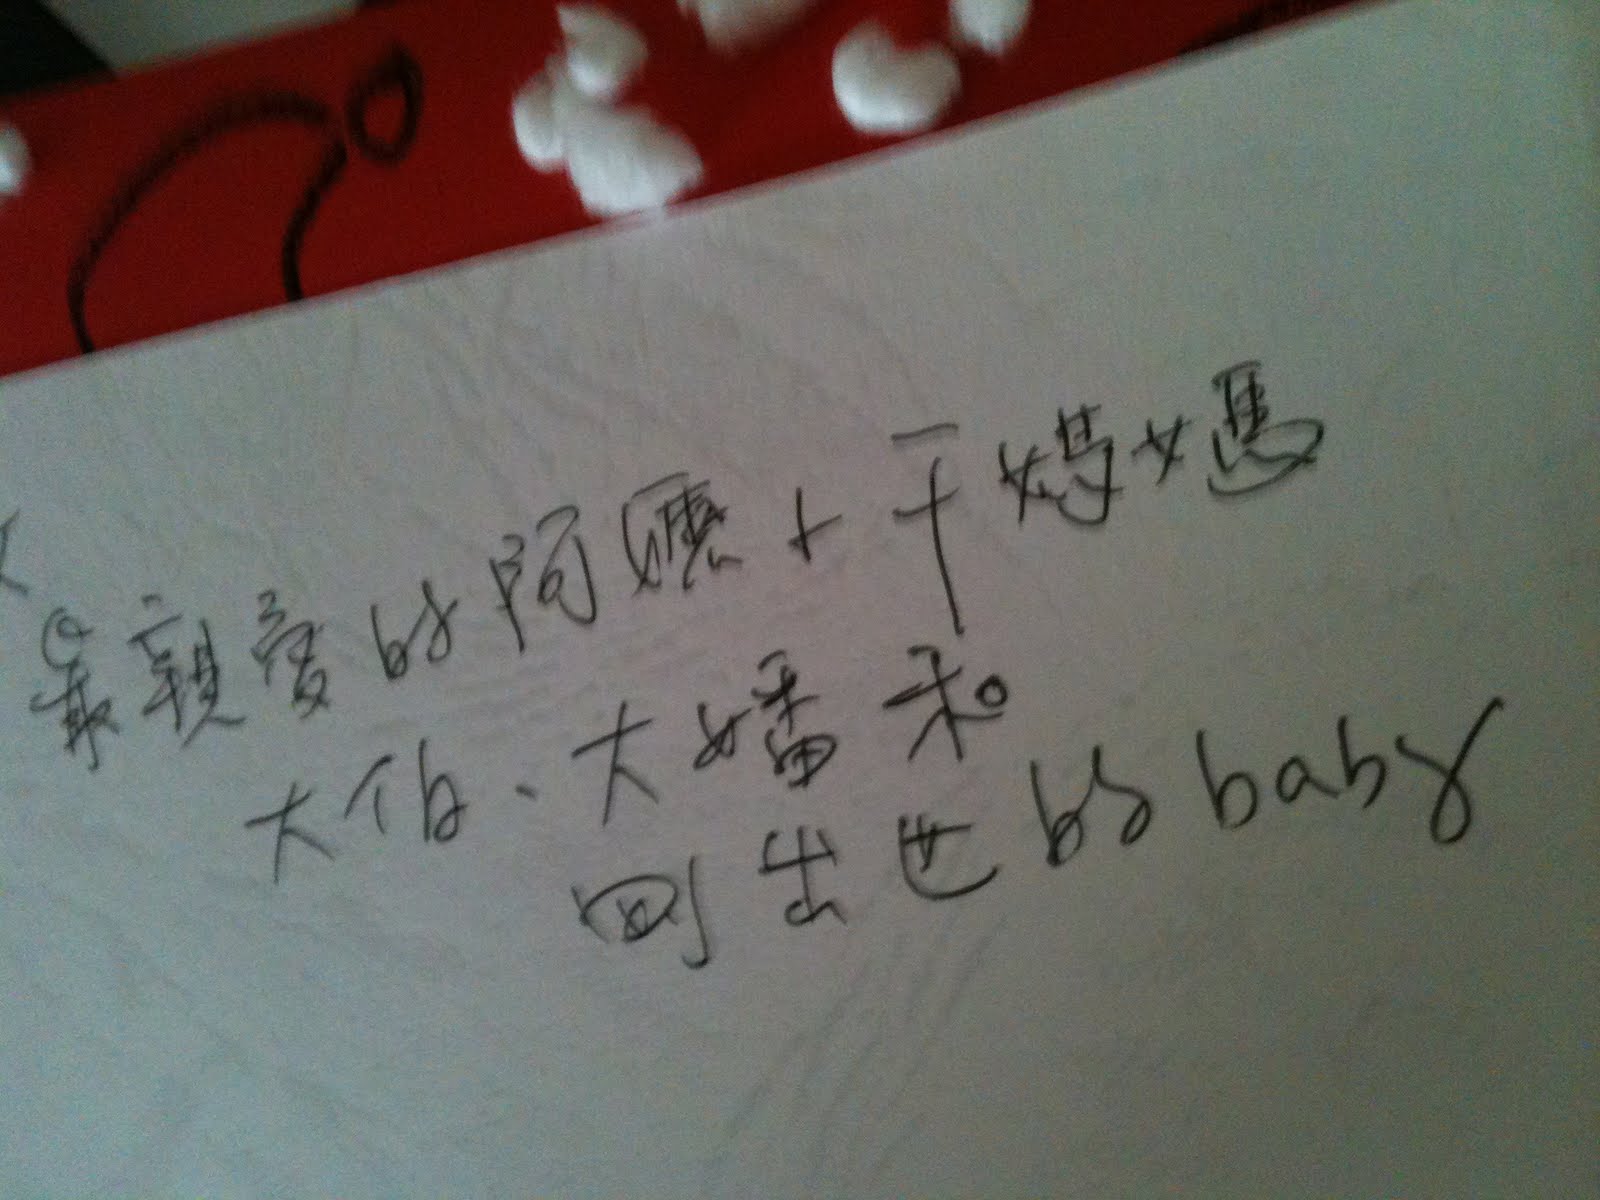 最親愛的阿嬤+干媽媽
大伯、大嬸和
剛出世的baby